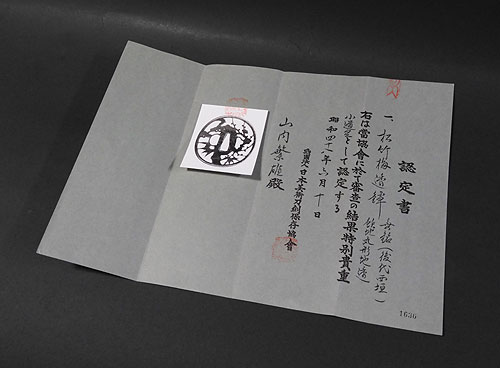 認定書
一、松竹梅透鐔 無銘(後代西垣)
右は當協會に於て審査の結果特別貴重
小道具として認定する
昭和四十八年六月十日
財團法人日本美術刀劍保存協會
山内繁雄殿
1636